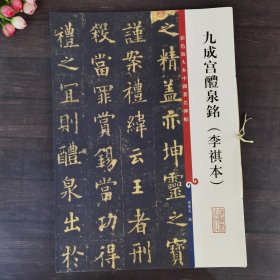 九成宫醴泉銘(李祺本)
彩色放大本中國著名碑帖
之精蓋亦坤靈之寶
謹案禮緯云王者刑
殺當罪賞錫當功得
禮之冝則醴泉出於